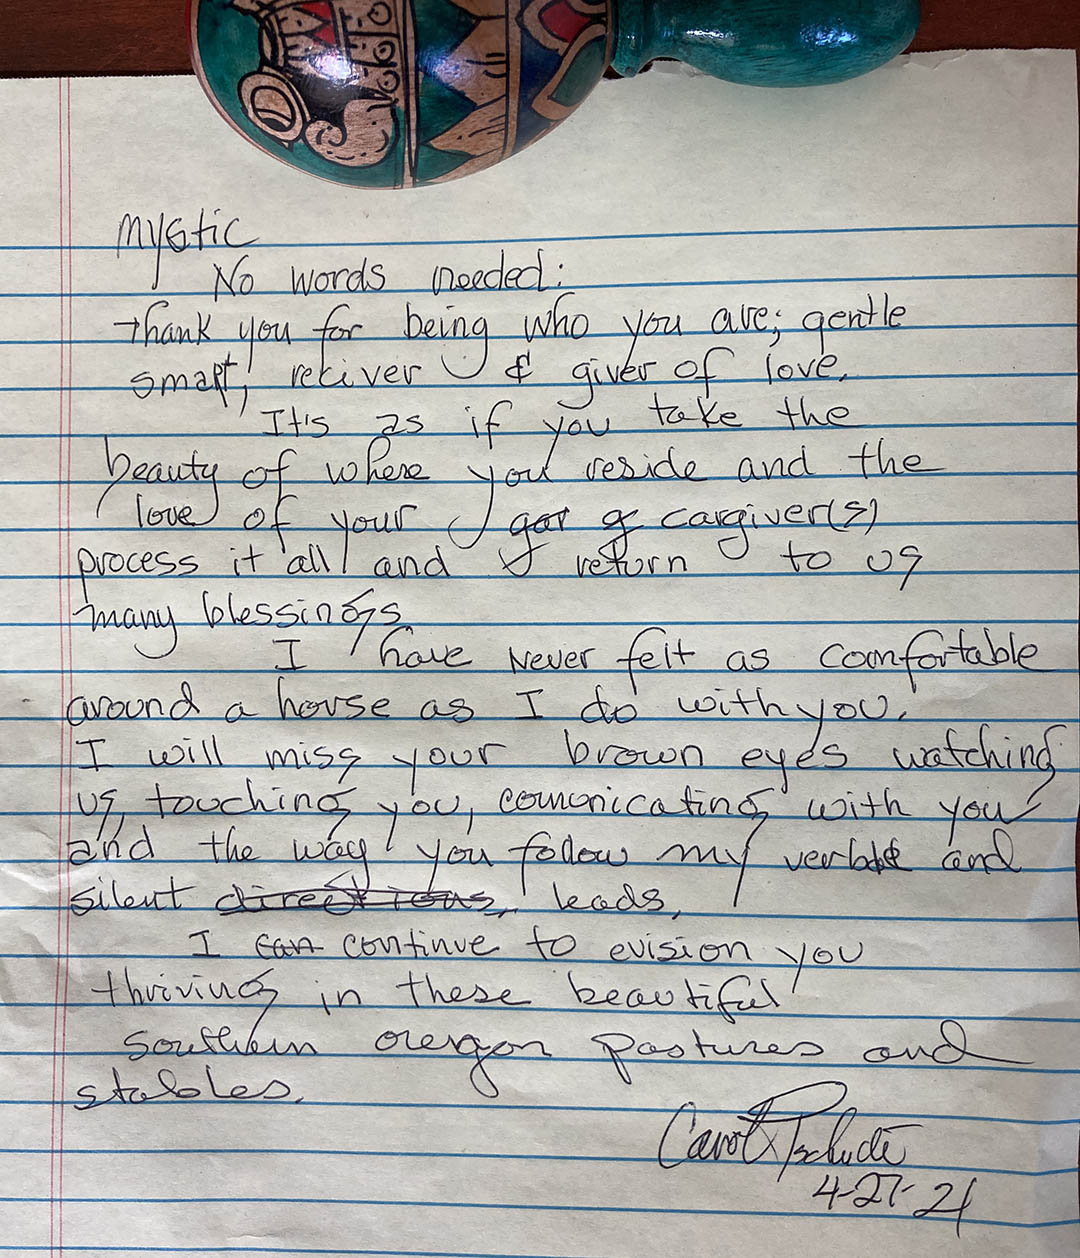 Mystic
No words needed:
Thank you for being who you are; gentle
smart, reciver & giver of love.
It's as if you take the
beauty of where you reside and the
love of your cargiver(s)
process it all and return to us
many blessings
I have never felt as comfortable
around a horse as I do with you.
I will miss your brown eyes watching
us, touching you, comunicating with you
and the way you follow my verbal and
silent directions, leads,
I can continue to evision you
thriving in these beautiful
southern oregon pastures and
stables.
Carol
4-27-21